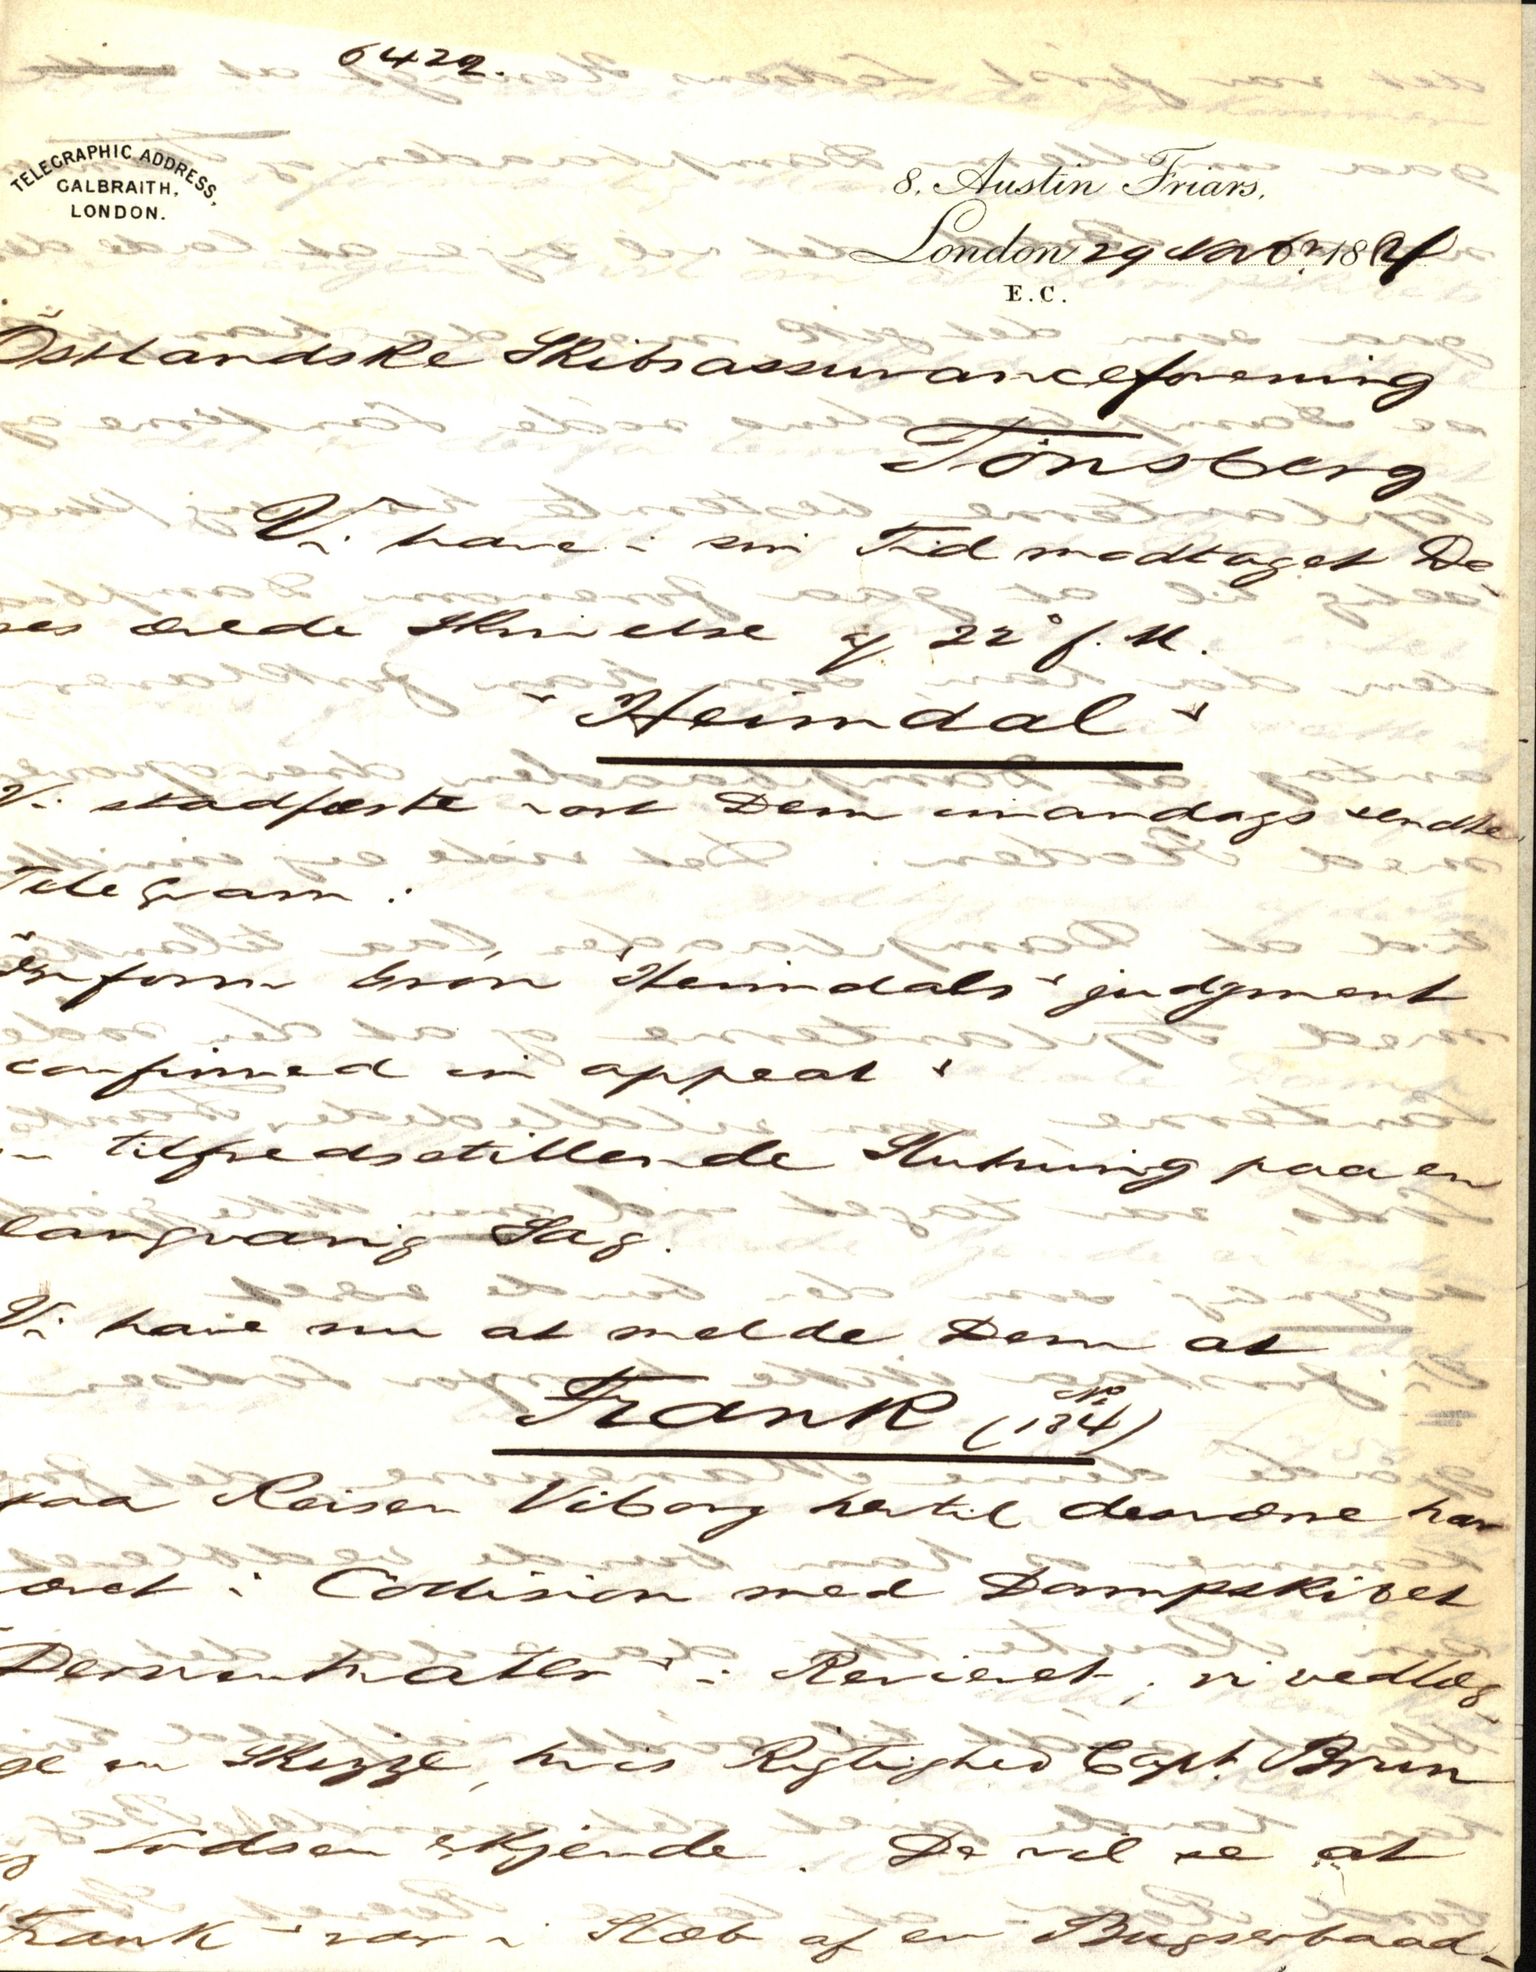 6422.
TELEGRAPHIC ADDRESS,
GALBRAITH,
LONDON.
8, Austin Friars,
London 29 Novbr 1884
E.C.
Östlandske Skibsassuranceforening
Tönsberg
Vi have i sin Tid modtaget De-
res ærede Skrivelse af 22 f. M.
"Heimdal"
Vi stadfæste vort Dem mandags sendte
Telegram:
"Inform Grön "Heimdals" judgment
confirmed in appeal"
en tilfredsstillende Slutning paa en
langvarig Sag.
Vi have nu at melde Dem at
Frank (No 134)
paa Reisen Viborg hertil desværre har
været i Collision med Dampskibet
"Demontrater" i Revieret, vi vedlæg-
ge en Skizze, hvis Rigtighed Capt. Brun
og Lodsen erkjende. De vil se at
"Frank" var i Slæb af en Bugserbaad-